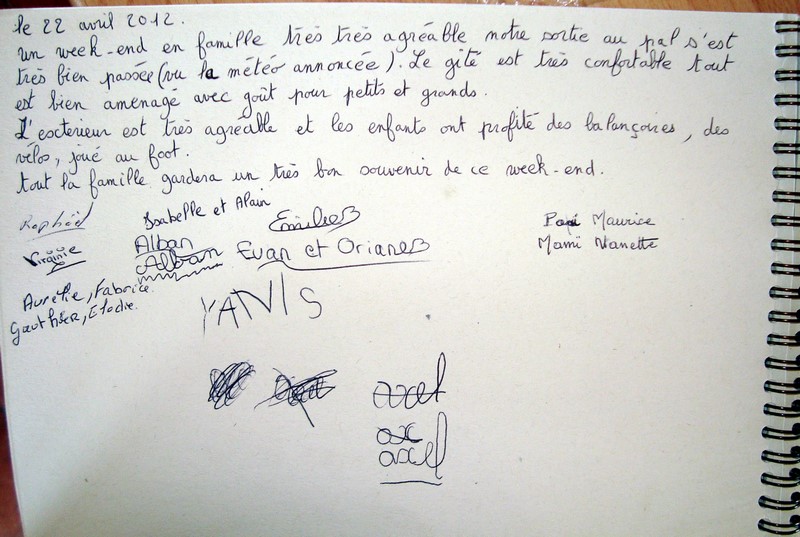 le 22 avril 2012.
un week-end en famille très très agréable notre sortie au pal s'est
très bien passée (vu la météo annoncée). Le gité est très confortable tout
est bien aménagé avec goût pour petits et grands.
L'escterieur est très agréable et les enfants ont profité des balançoires, des
vélos, joué au foot.
tout la famille gardera un très bon souvenir de ce week-end.
Raphaël
Isabelle et Alain
Emilie B
Papi Maurice
Virginie
Alban
Alban
Evan et Oriane B
Mamï Nanette
Aurélie, Fabrice
Gauthier, Elodie
YANIS
axel
ax
axel